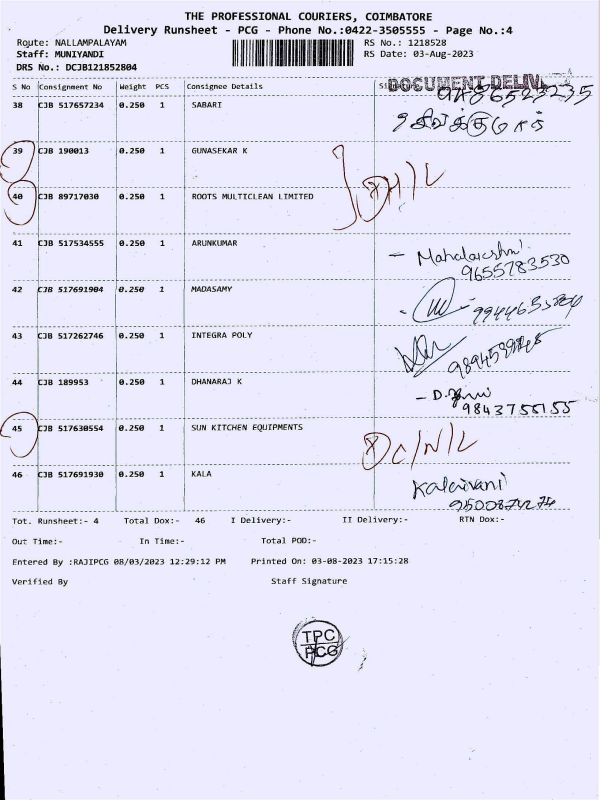 THE PROFESSIONAL COURIERS, COIMBATORE
Delivery Runsheet - PCG - Phone No.:0422-3505555 - Page No.:4
Route: NALLAMPALAYAM RS No.: 1218528
Staff: MUNIYANDI RS Date: 03-Aug-2023
DRS No.: DCJB121852804
S No Consignment No Weight PCS Consignee Details DOCUMENT DELIV
38 CJB 517657234 0.250 1 SABARI
39 CJB 190013 0.250 1 GUNASEKAR K
40 CJB 89717030 0.250 1 ROOTS MULTICLEAN LIMITED
41 CJB 517534555 0.250 1 ARUNKUMAR - Mahalakshmi
9655783530
42 CJB 517691904 0.250 1 MADASAMY
43 CJB 517262746 0.250 1 INTEGRA POLY
44 CJB 189953 0.250 1 DHANARAJ K
9843755155
45 CJB 517630554 0.250 1 SUN KITCHEN EQUIPMENTS DC/N/L
46 CJB 517691930 0.250 1 KALA Kalaivani
9500874274
Tot. Runsheet:- 4 Total Dox:- 46 I Delivery:- II Delivery:- RTN Dox:-
Out Time:- In Time:- Total POD:-
Entered By :RAJIPCG 08/03/2023 12:29:12 PM Printed On: 03-08-2023 17:15:28
Verified By Staff Signature
TPC
PCG